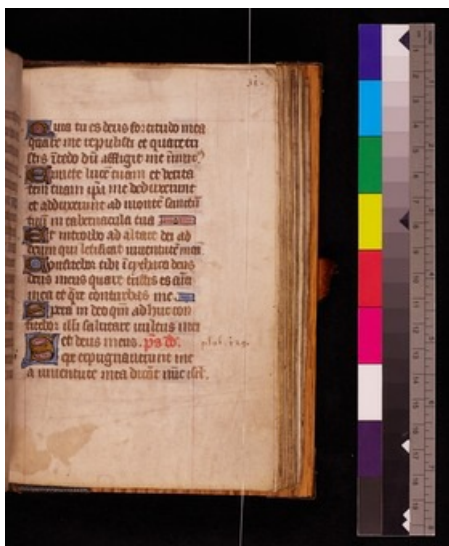 31.
Quia tu es deus fortitudo mea
quare me repulisti et quare tri
stis īcedo dū affligit me inimic9
Emitte lucē tuam et verita
tem tuam ipā me deduxerunt
et adduxerunt ad montē sanctū
tuū in tabernacula tua
Et introibo ad altare dei ad
deum qui letificat iuventutē meā
Confitebor tibi ī cythara deus
deus meus quare tristis es aīa
mea et qre conturbas me
Spera in deo qm̄ adhuc con
fitebor illi salutare vultus mei
et deus meus. ps dd.
Sepe expugnaverunt me
a iuventute mea dicat nūc isrl.